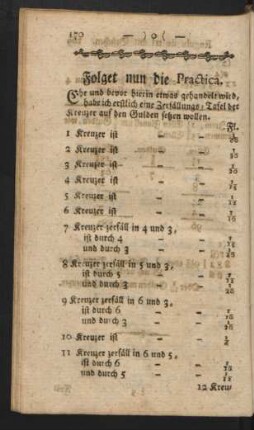 170 — ) o ( —
Folget nun die Practica.
Ehe und bevor hierin etwas gehandelt wird,
hab ich erstlich eine Zerfällungs-Tafel der
Kreuzer auf den Gulden setzen wollen.
Fl.
1 Kreuzer ist - - 1/60
2 Kreuzer ist - - 1/30
3 Kreuzer ist - - 1/20
4 Kreuzer ist - - 1/15
5 Kreuzer ist - - 1/12
6 Kreuzer ist - - 1/10
7 Kreuzer zerfäll in 4 und 3,
ist durch 4 - - 1/15
und durch 3 - - 1/20
8 Kreuzer zerfäll in 5 und 3,
ist durch 5 - - 1/12
und durch 3 - - 1/20
9 Kreuzer zerfäll in 6 und 3,
ist durch 6 - - 1/10
und durch 3 - - 1/20
10 Kreuzer ist - - 1/6
11 Kreuzer zerfäll in 6 und 5,
ist durch 6 - - 1/10
und durch 5 - - 1/12
12 Kreu-